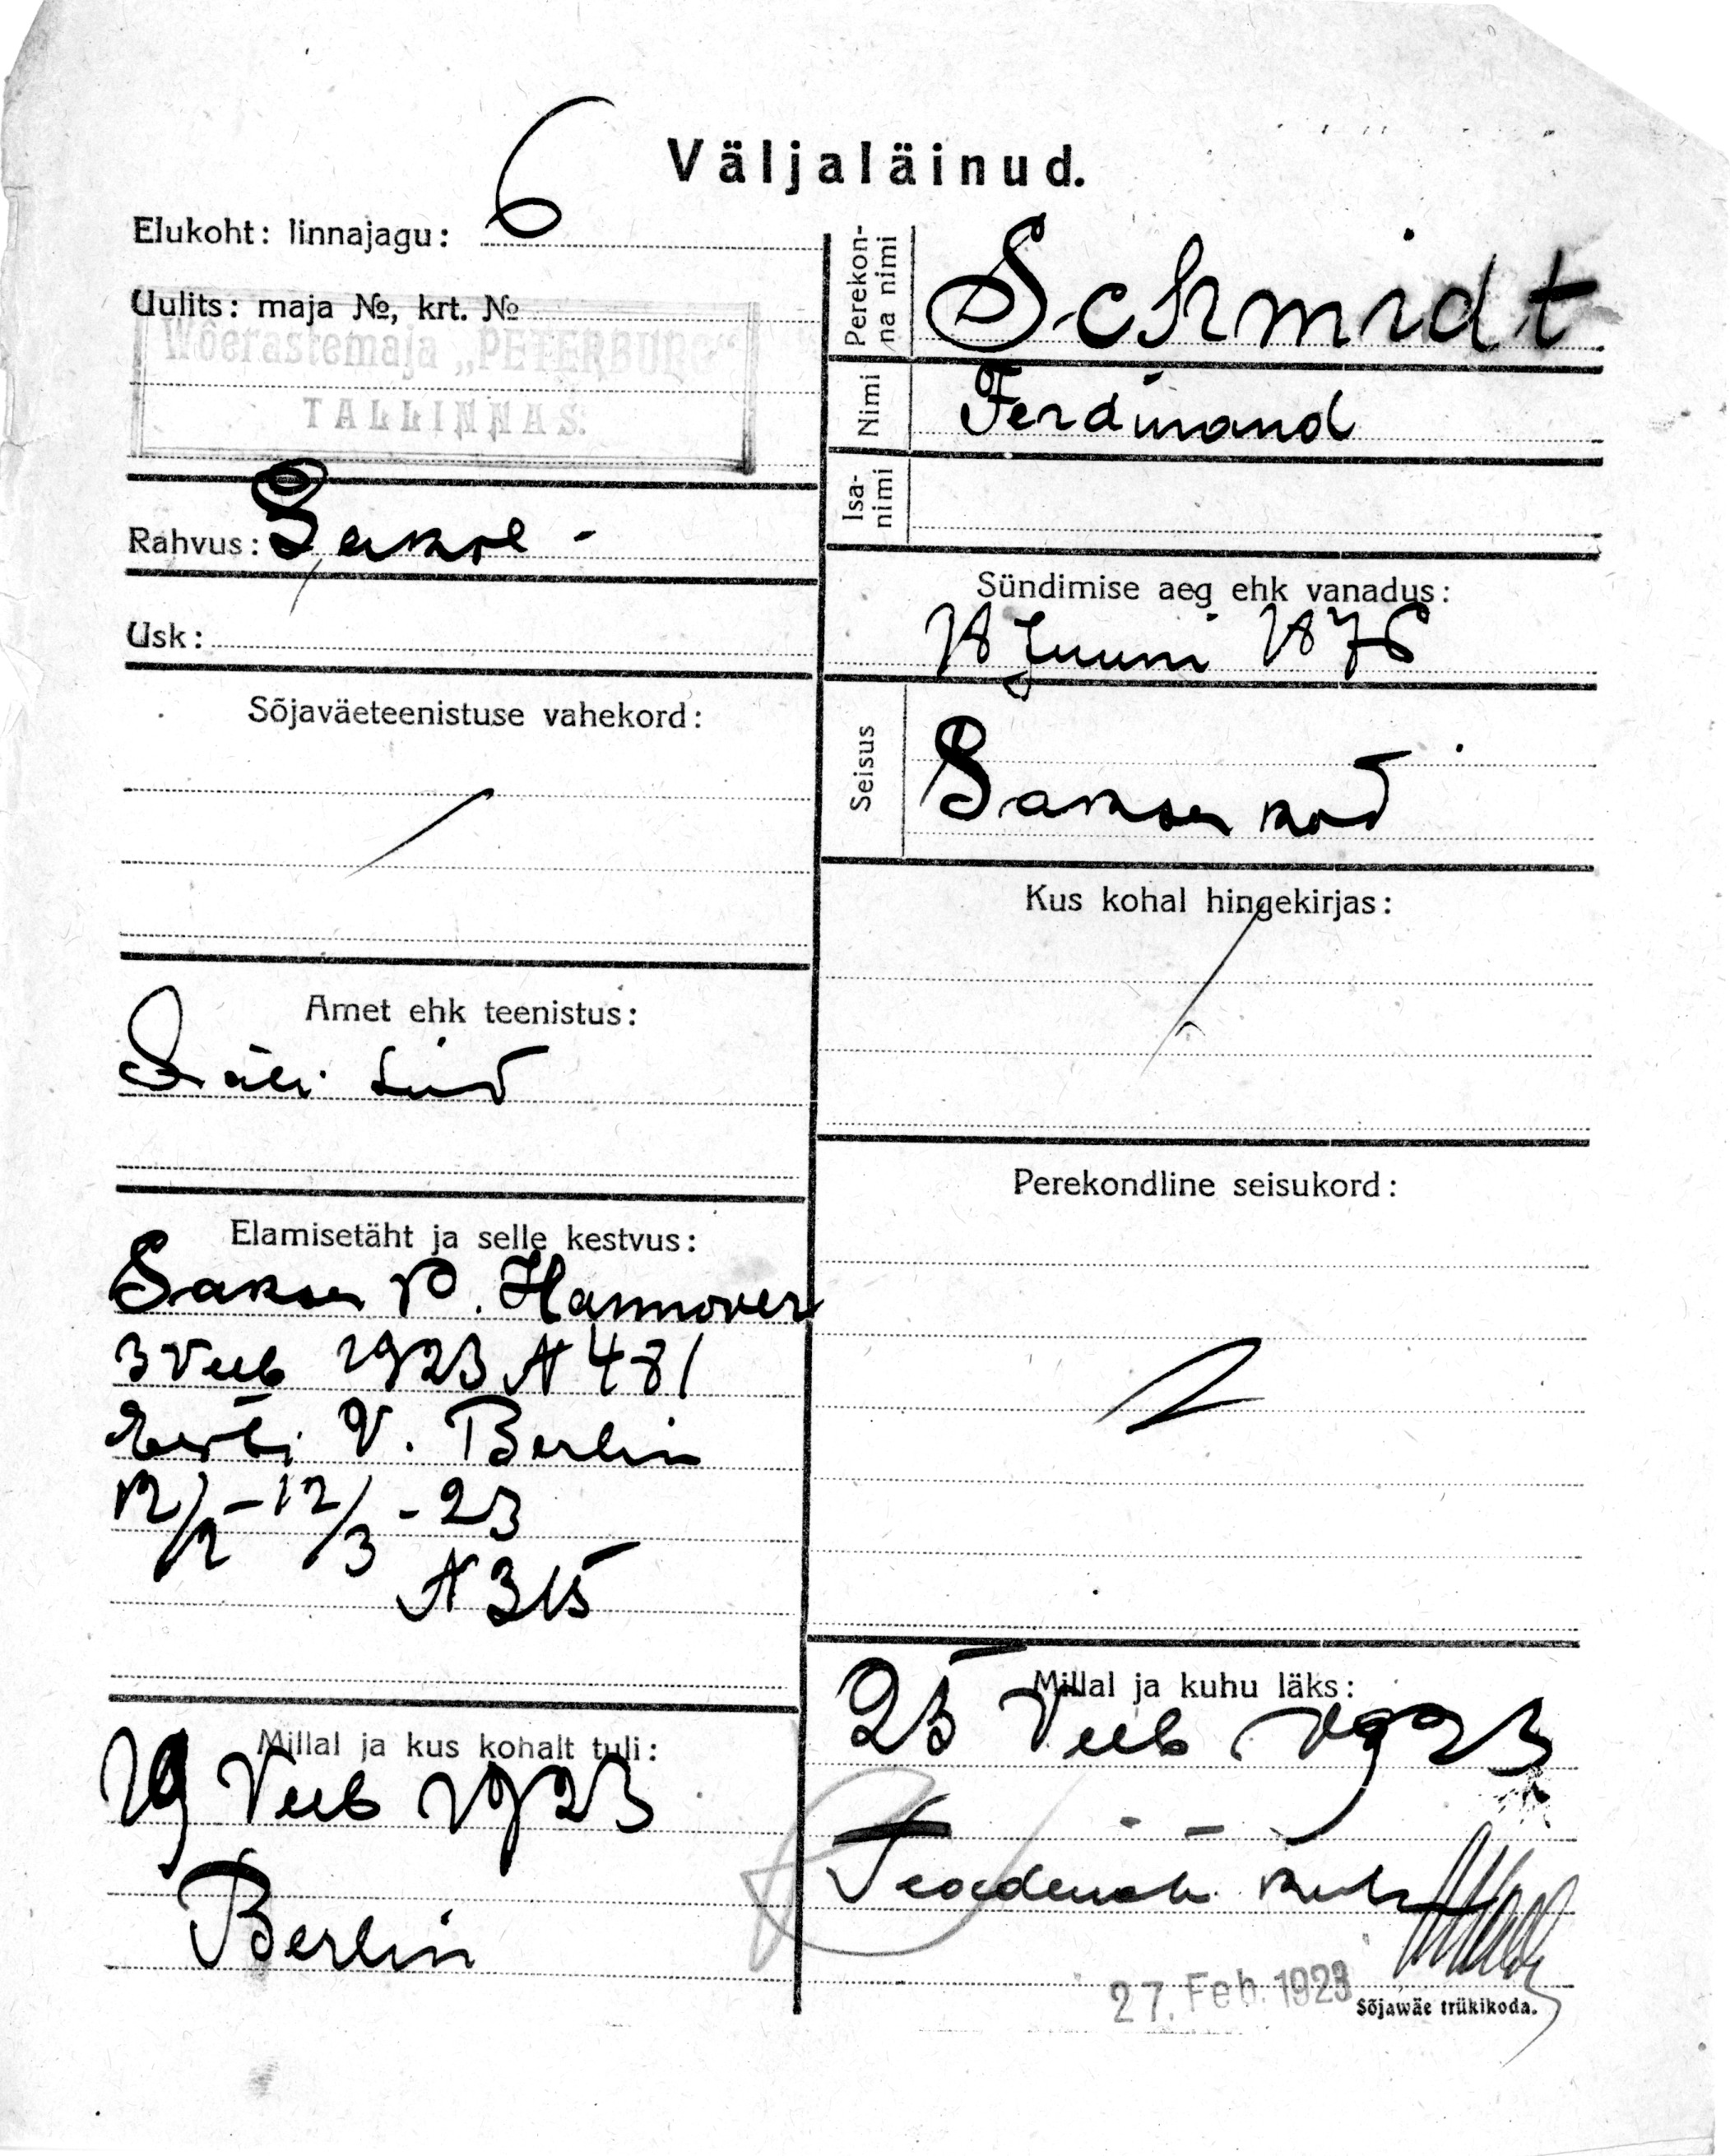 Väljaläinud.
Elukoht: linnajagu: 6
Uulits: maja №, krt. №
Wõerastemaja „PETERBURG“
TALLINNAS.
Rahvus: Sakse -
Usk:
Sõjaväeteenistuse vahekord:
Amet ehk teenistus:
Elamisetäht ja selle kestvus:
Saksa P. Hannover
3 Veeb 1923 N 481
Eesti V. Berlin
12/2 - 12/3 - 23
N 315
Millal ja kus kohalt tuli:
19 Veeb 1923
Berlin
Perekon-
na nimi
Schmidt
Nimi
Ferdinand
Isa-
nimi
Sündimise aeg ehk vanadus:
18 Juuni 1876
Seisus
Saksa kod
Kus kohal hingekirjas:
Perekondline seisukord:
Millal ja kuhu läks:
25 Veeb 1923
27. Feb. 1923
Sõjawäe trükikoda.